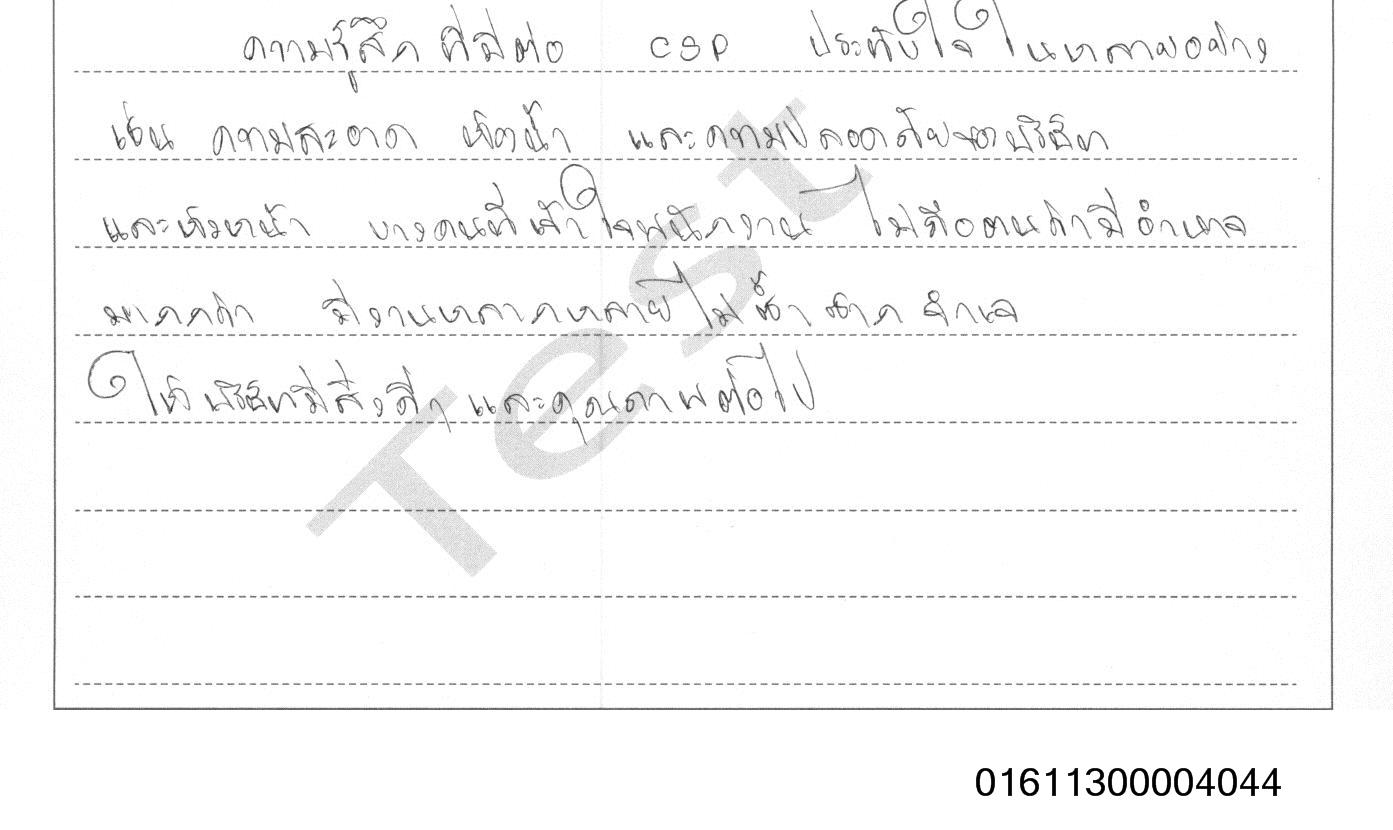 ความรู้สึก ที่มีต่อ CSP ประทับใจ ในหลายอย่าง
เช่น ความสะอาด ห้องน้ำ และความปลอดภัยของบริษัท
และหัวหน้า บางคนที่เข้าใจพนักงาน ไม่ถือตนว่ามีอำนาจ
มากกว่า มีงานหลากหลาย ไม่ซ้ำ ซาก จำเจ
ให้ บริษัทมีสิ่งดีๆ และคุณภาพต่อไป
Test
01611300004044